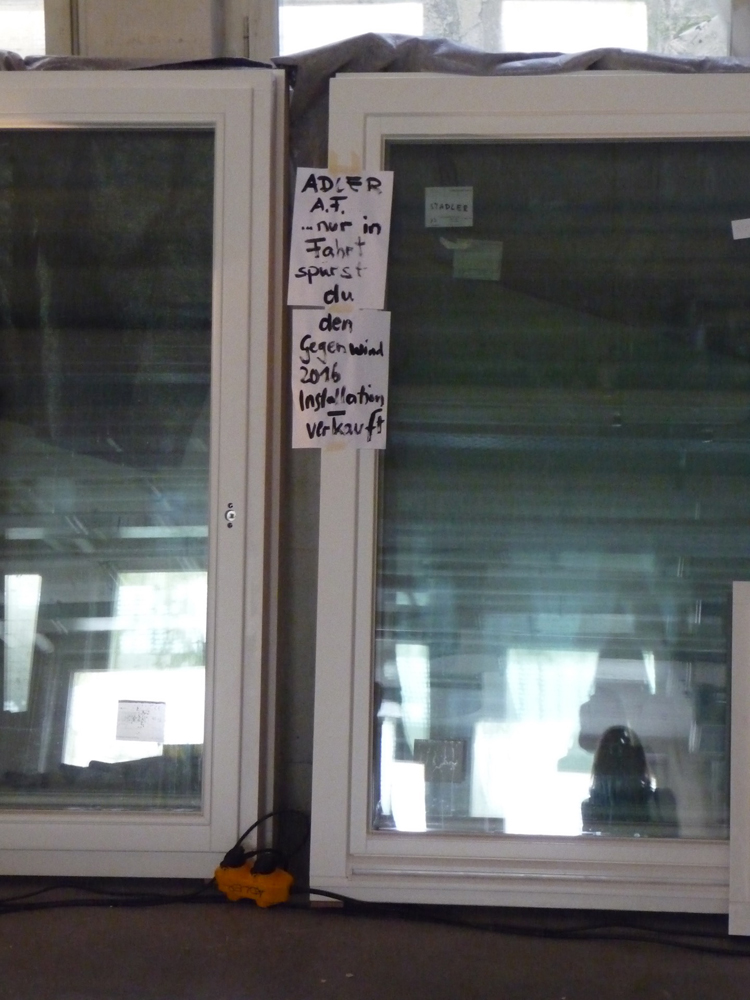 ADLER
A.F.
...nur in
Fahrt
spürst
du
den
Gegenwind
2016
Installation
verkauft
STADLER